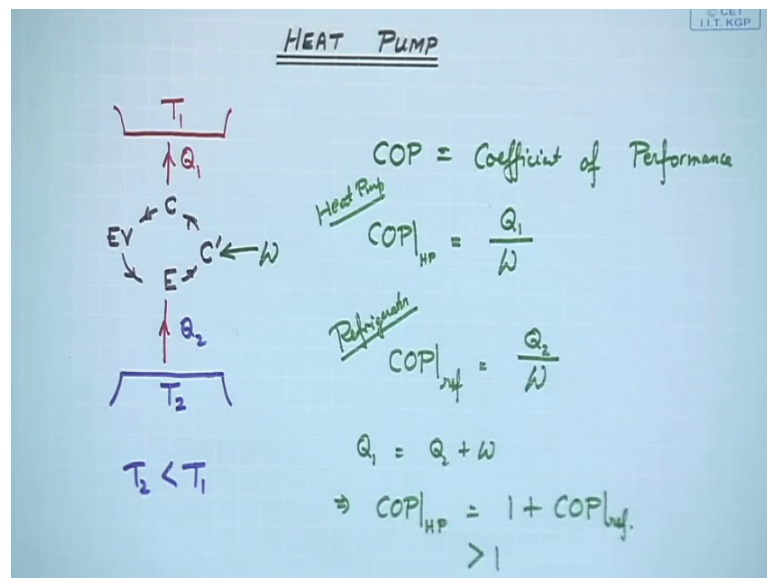 © CET
I.I.T. KGP
HEAT PUMP
T₁
Q₁
C
EV
C' ← W
E
Q₂
T₂
T₂ < T₁
COP = Coefficient of Performance
Heat Pump
COP|HP = Q₁/W
Refrigerator
COP|ref = Q₂/W
Q₁ = Q₂ + W
⇒ COP|HP = 1 + COP|ref.
> 1